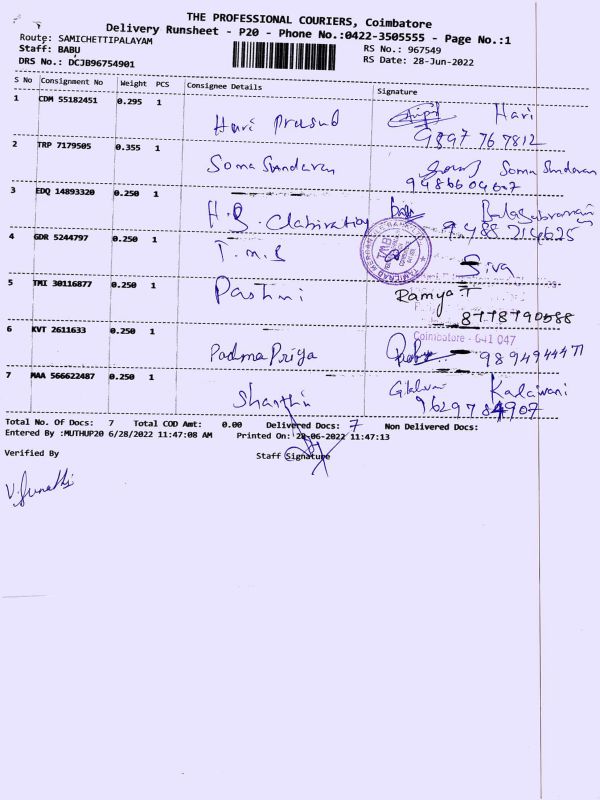 THE PROFESSIONAL COURIERS, Coimbatore
Delivery Runsheet - P20 - Phone No.:0422-3505555 - Page No.:1
Route: SAMICHETTIPALAYAM
RS No.: 967549
Staff: BABU
RS Date: 28-Jun-2022
DRS No.: DCJB96754901
S No Consignment No Weight PCS Consignee Details Signature
1 CDM 55182451 0.295 1 Hari Prasad Hari
9897 76 7812
2 TRP 7179505 0.355 1 Soma Sundaran Soma Sundaran
9486604607
3 EDQ 14893320 0.250 1 H.B. Balasubramani
9488214625
4 GDR 5244797 0.250 1 T.M.B Siva
5 TMI 30116877 0.250 1 Ramya.T
8778790588
Coimbatore - 641 047
6 KVT 2611633 0.250 1 Padma Priya
7 MAA 566622487 0.250 1 Shanthi
9629784907
Total No. Of Docs: 7 Total COD Amt: 0.00 Delivered Docs: 7 Non Delivered Docs:
Entered By :MUTHUP20 6/28/2022 11:47:08 AM Printed On: 28-06-2022 11:47:13
Verified By Staff Signature